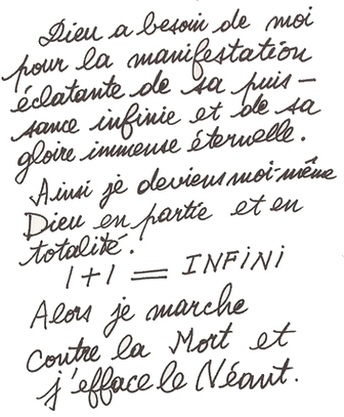 Dieu a besoin de moi
pour la manifestation
éclatante de sa puis-
sance infinie et de sa
gloire immense éternelle.
Ainsi je deviens moi-même
Dieu en partie et en
totalité.
1+1 = INFiNi
Alors je marche
contre la Mort et
j'efface le Néant.